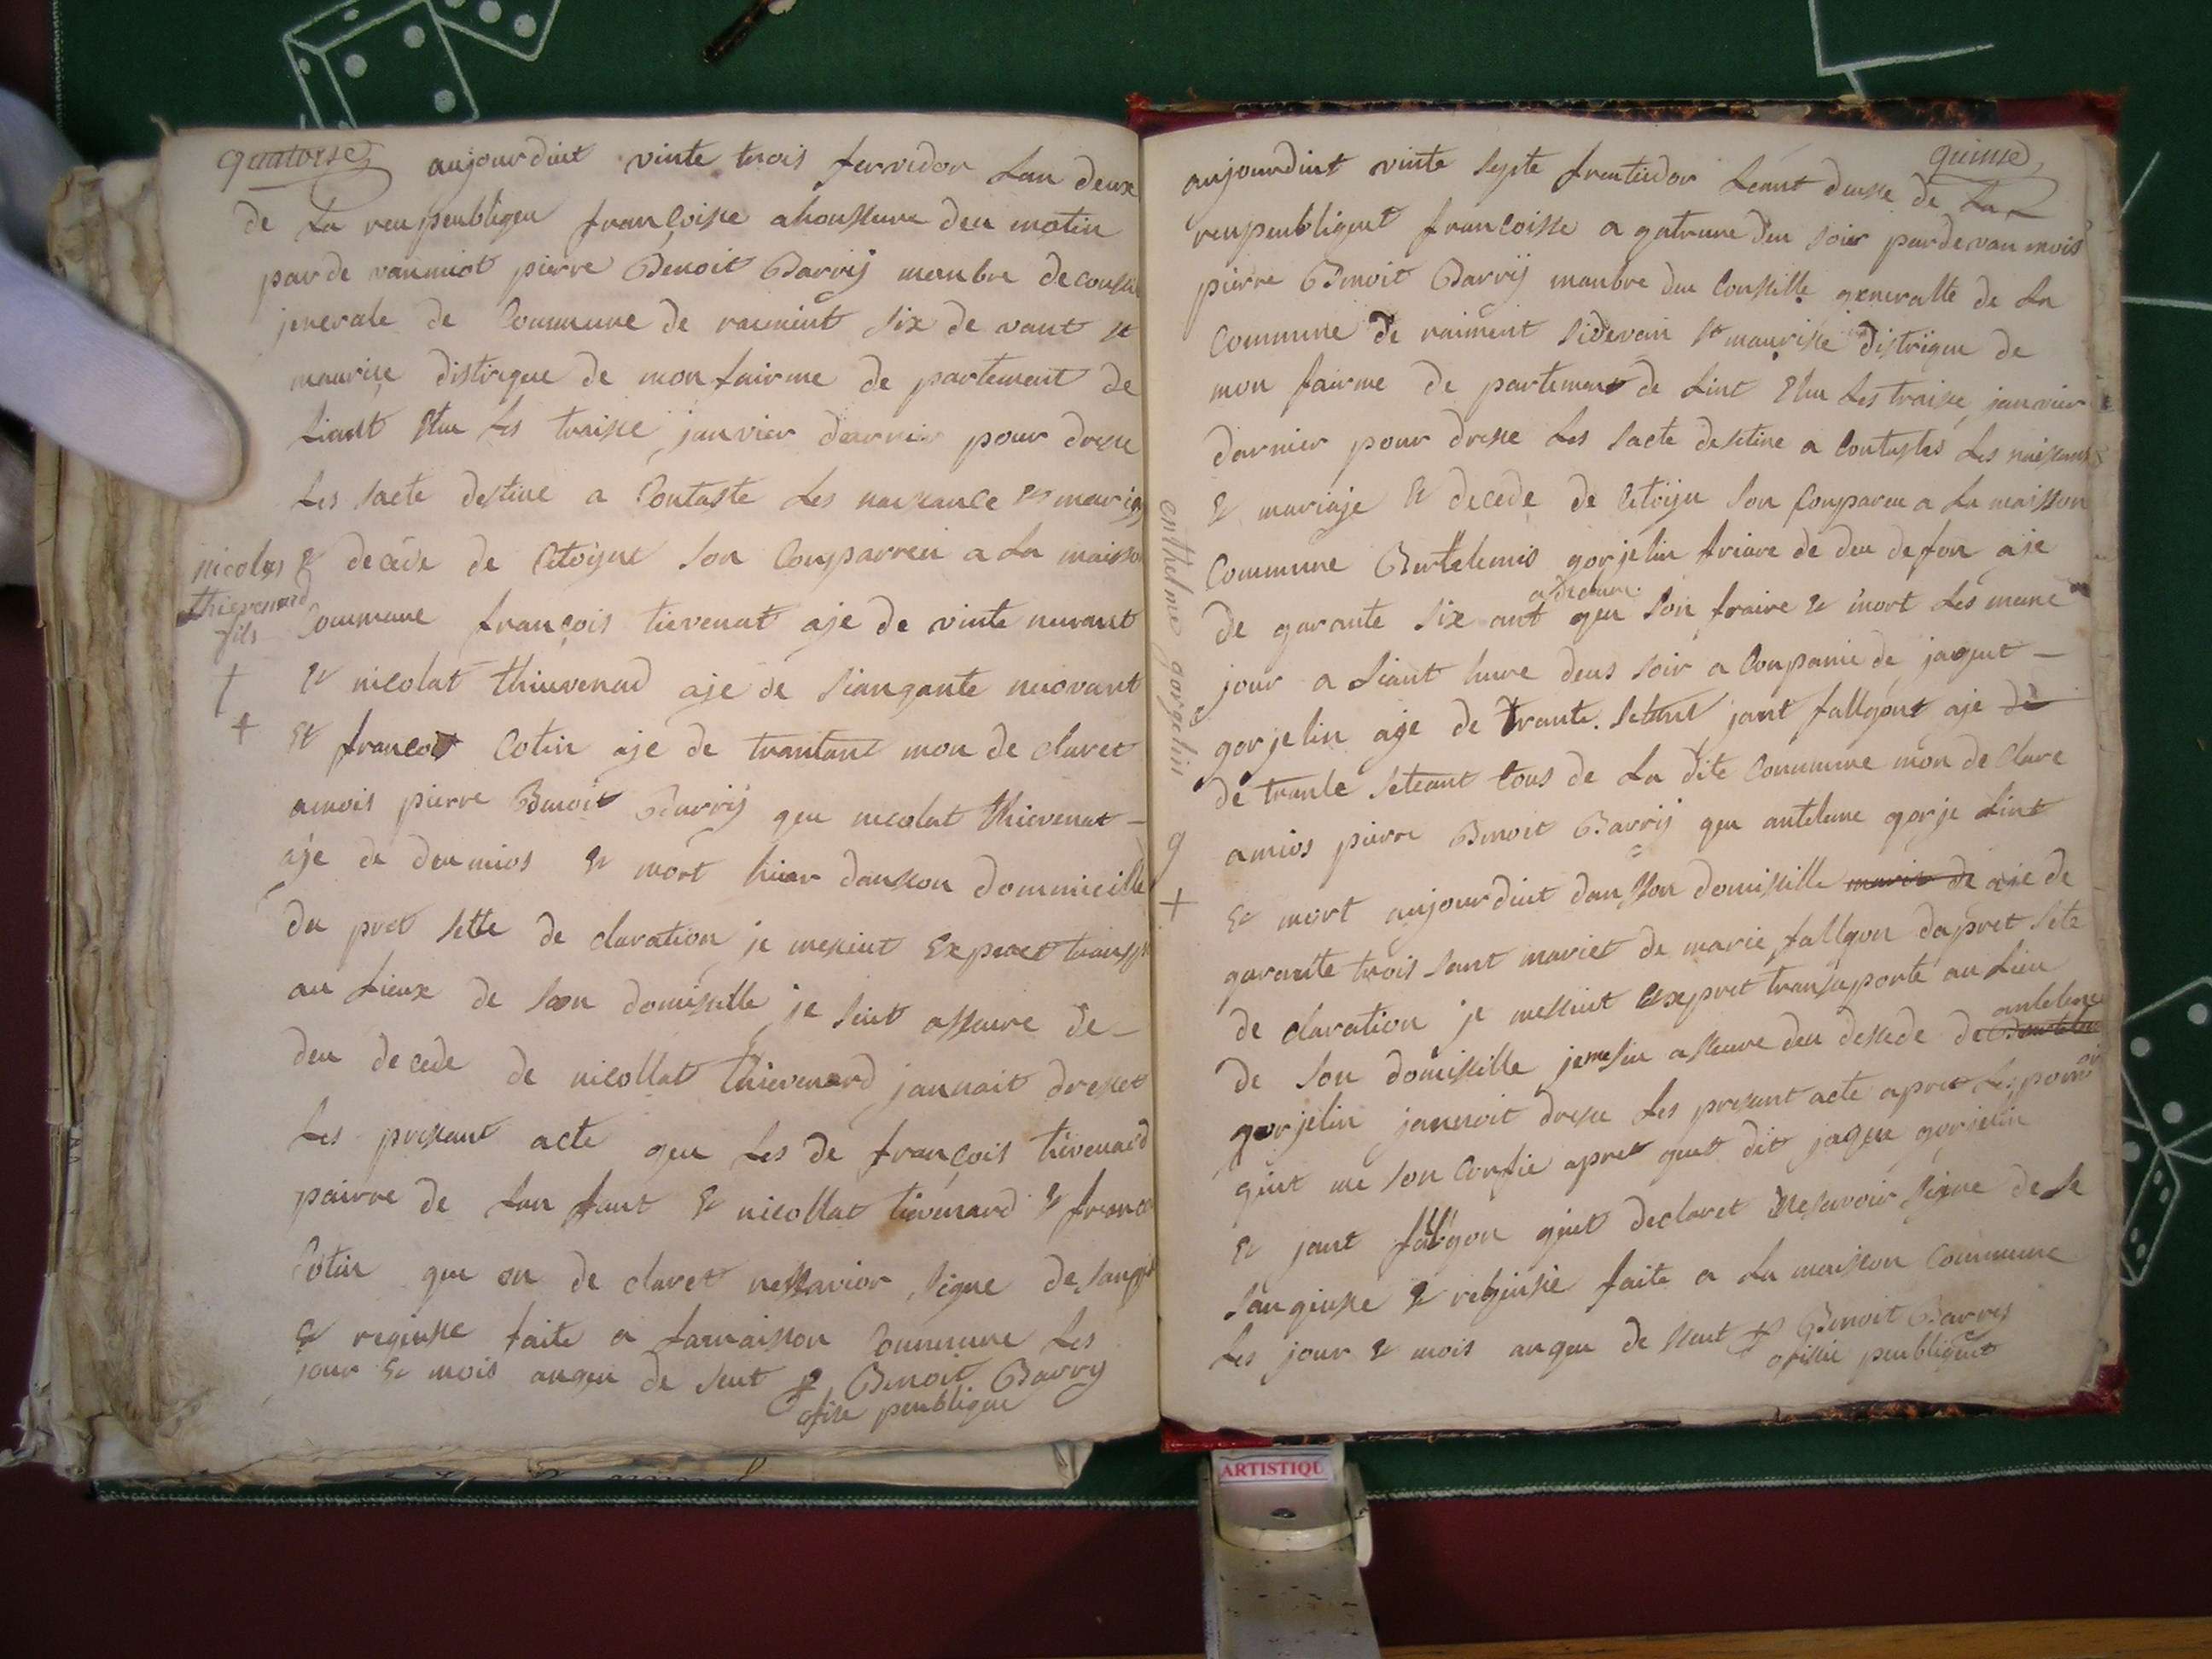 quatorse
aujourdint vinte trois farvidor Lan deuxe
de La reupeubligeu françoise ahonsseure deu matin
par de vanmiot pierre Benoit Barrij manbre de
jenerale de Commune de raimint six de vant st
maurise distrique de mon fairme de partement de
Liant Elu Les traise janvier darrier pour drese
Les sacte destine a Contaste Les naixance et
& decede de Citoigne son Comparreu a La maisson
Commune françois tievenat aje de vinte neuvant
& nicolat thiuvenad aje de siangante neuovant
Et françot Cotin aje de trantant mon de claret
amois pierre Benoit Barrij qeu nicolat thievenat
aje de deu mios & mort hier dansson dommicille
da pret sette de claration je mesiut Expret
au Lieux de son domissille je siut assure de
deu decede de nicollat thievenard jannait dreset
Les presant acte qeu Les de françois tievenard
pairre de Lan fant & nicollat tievenard &
Cotin qeu on de claret nessavior signe de
& regiusse faite a Lamaisson Commune Les
jour & mois anqeu de seut p Benoit Barry
ofise peubligue
nicolas
thievenard
fils
quinse
aujourdint vinte septe frentidor Leant deuse de La
reupeubligeut francoisse a qatreure deu soir pardevan mois
pierre Benoit Barrij manbre deu Conssille generalle de La
Commune de raiment sidevan st maurisse distrique de
mon fairme de partement de Lint Elu Les traise janvier
darnier pour drese Les sacte destine a Contastes Les
& mariaje & decede de Citoiju son Compareu a La maisson
Commune Bertelemis gorjelin friare de deu defon aje
a declare
de garante six ant qeu son fraire & mort Les mene
jour a siant heure deus soir a Conpanie de jaquet
gorjelin aje de trante setant jant fallgont aje de
de trante seteant tous de La dite Commune mon de Clare
amios pierre Benoit Barrij qeu antelme gorje Lint
& mort aujourdiut dansson domissille marie de aje de
garante trois sant mariet de marie fallgon dapret sete
de claration je messiut Expret transeporte au Lieu
de son domissille je me siu asseure deu desede de antelme
gorjelin janenoit drese Les presant acte apret Les
qiut me son Confie apret qeut dit jaque gorjelin
& jant falgon qiut declaret Nesavoir signe de se
sangiusse & regiusse faite a La maisson Commune
Les jour & mois anqeu de seut p Benoit Barry
ofisie peubligut
enthelme gorgelin